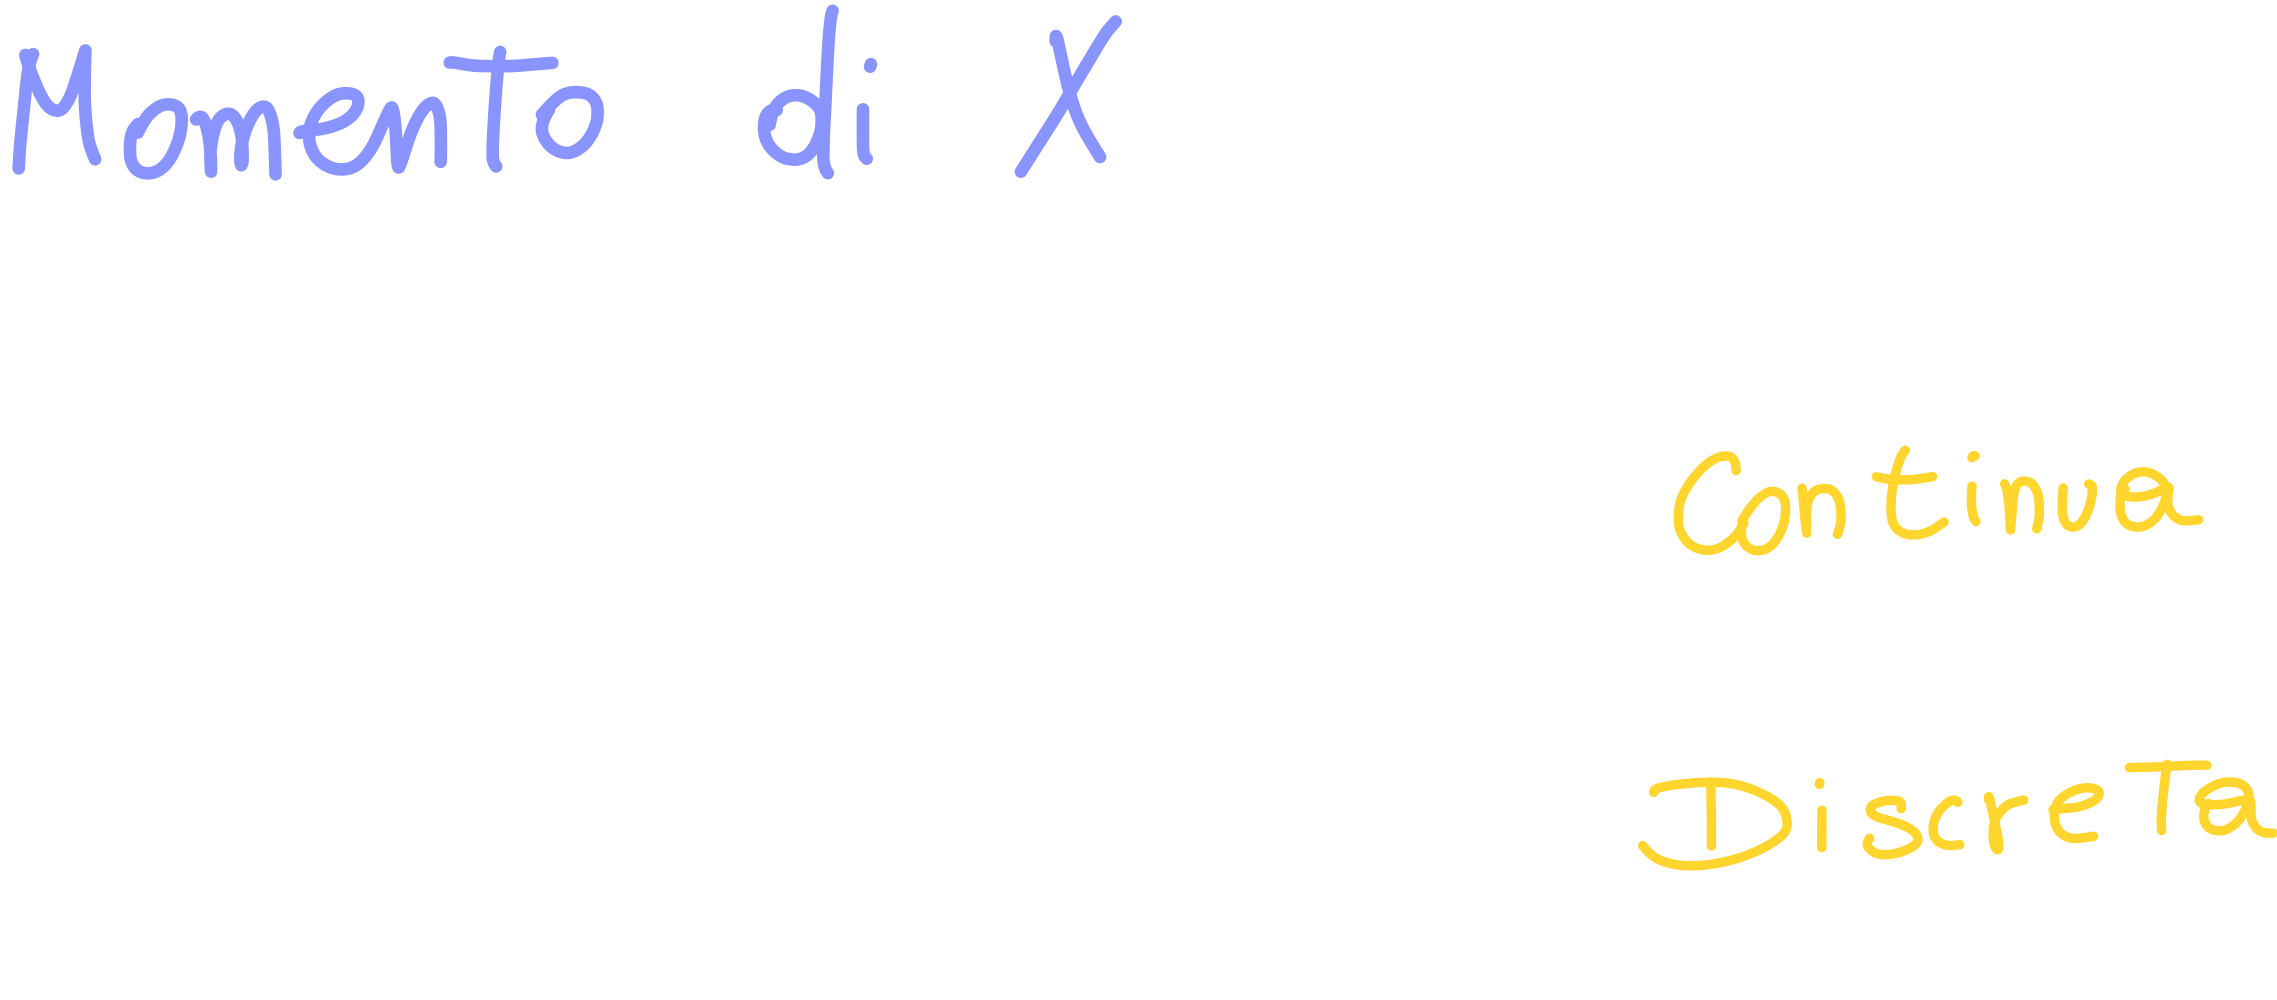 Momento di X
Continua
Discreta